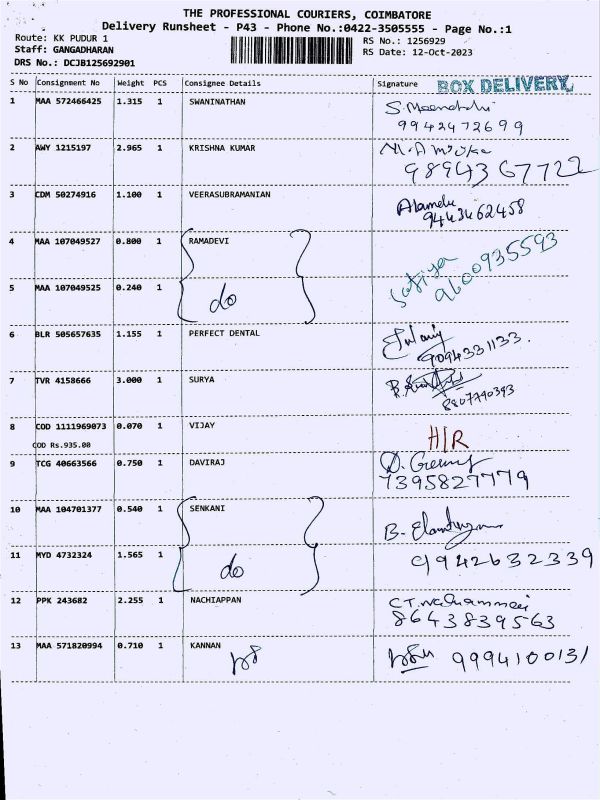 THE PROFESSIONAL COURIERS, COIMBATORE
Delivery Runsheet - P43 - Phone No.:0422-3505555 - Page No.:1
Route: KK PUDUR 1
RS No.: 1256929
Staff: GANGADHARAN
RS Date: 12-Oct-2023
DRS No.: DCJB125692901
S No Consignment No Weight PCS Consignee Details Signature BOX DELIVERY
1 MAA 572466425 1.315 1 SWANINATHAN S. Meenatchi
9942472699
2 AWY 1215197 2.965 1 KRISHNA KUMAR
9894367722
3 CDM 50274916 1.100 1 VEERASUBRAMANIAN Alamelu
9443462458
4 MAA 107049527 0.800 1 RAMADEVI Sathya
9600935593
5 MAA 107049525 0.240 1
do
6 BLR 505657635 1.155 1 PERFECT DENTAL
9094331133.
7 TVR 4158666 3.000 1 SURYA
8807790393
8 COD 1111969073 0.070 1 VIJAY H/R
COD Rs.935.00
9 TCG 40663566 0.750 1 DAVIRAJ
7395827779
10 MAA 104701377 0.540 1 SENKANI
11 MYD 4732324 1.565 1 9942632339
do
12 PPK 243682 2.255 1 NACHIAPPAN
8643839563
13 MAA 571820994 0.710 1 KANNAN 9994100131